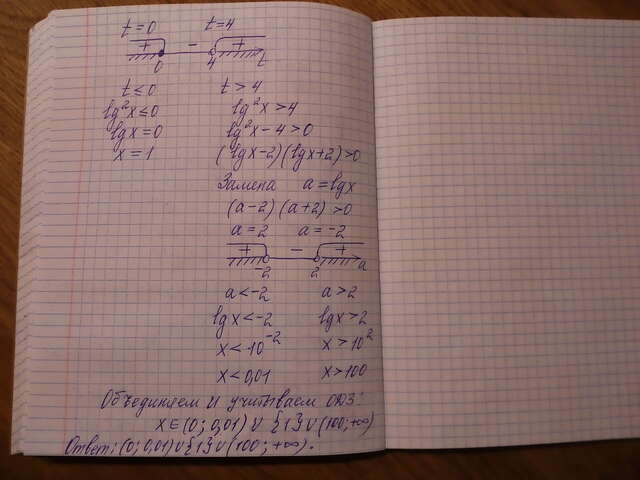 t=0 t=4
+ − +
0 4 t
t≤0 t>4
lg²x≤0 lg²x>4
lgx=0 lg²x−4>0
x=1 (lgx−2)(lgx+2)>0
Замена a=lgx
(a−2)(a+2)>0
a=2 a=−2
+ − +
−2 2 a
a<−2 a>2
lgx<−2 lgx>2
x<10⁻² x>10²
x<0,01 x>100
Объединяем и учитываем ОДЗ:
x∈(0; 0,01)∪{1}∪(100;+∞)
Ответ: (0; 0,01)∪{1}∪(100;+∞).